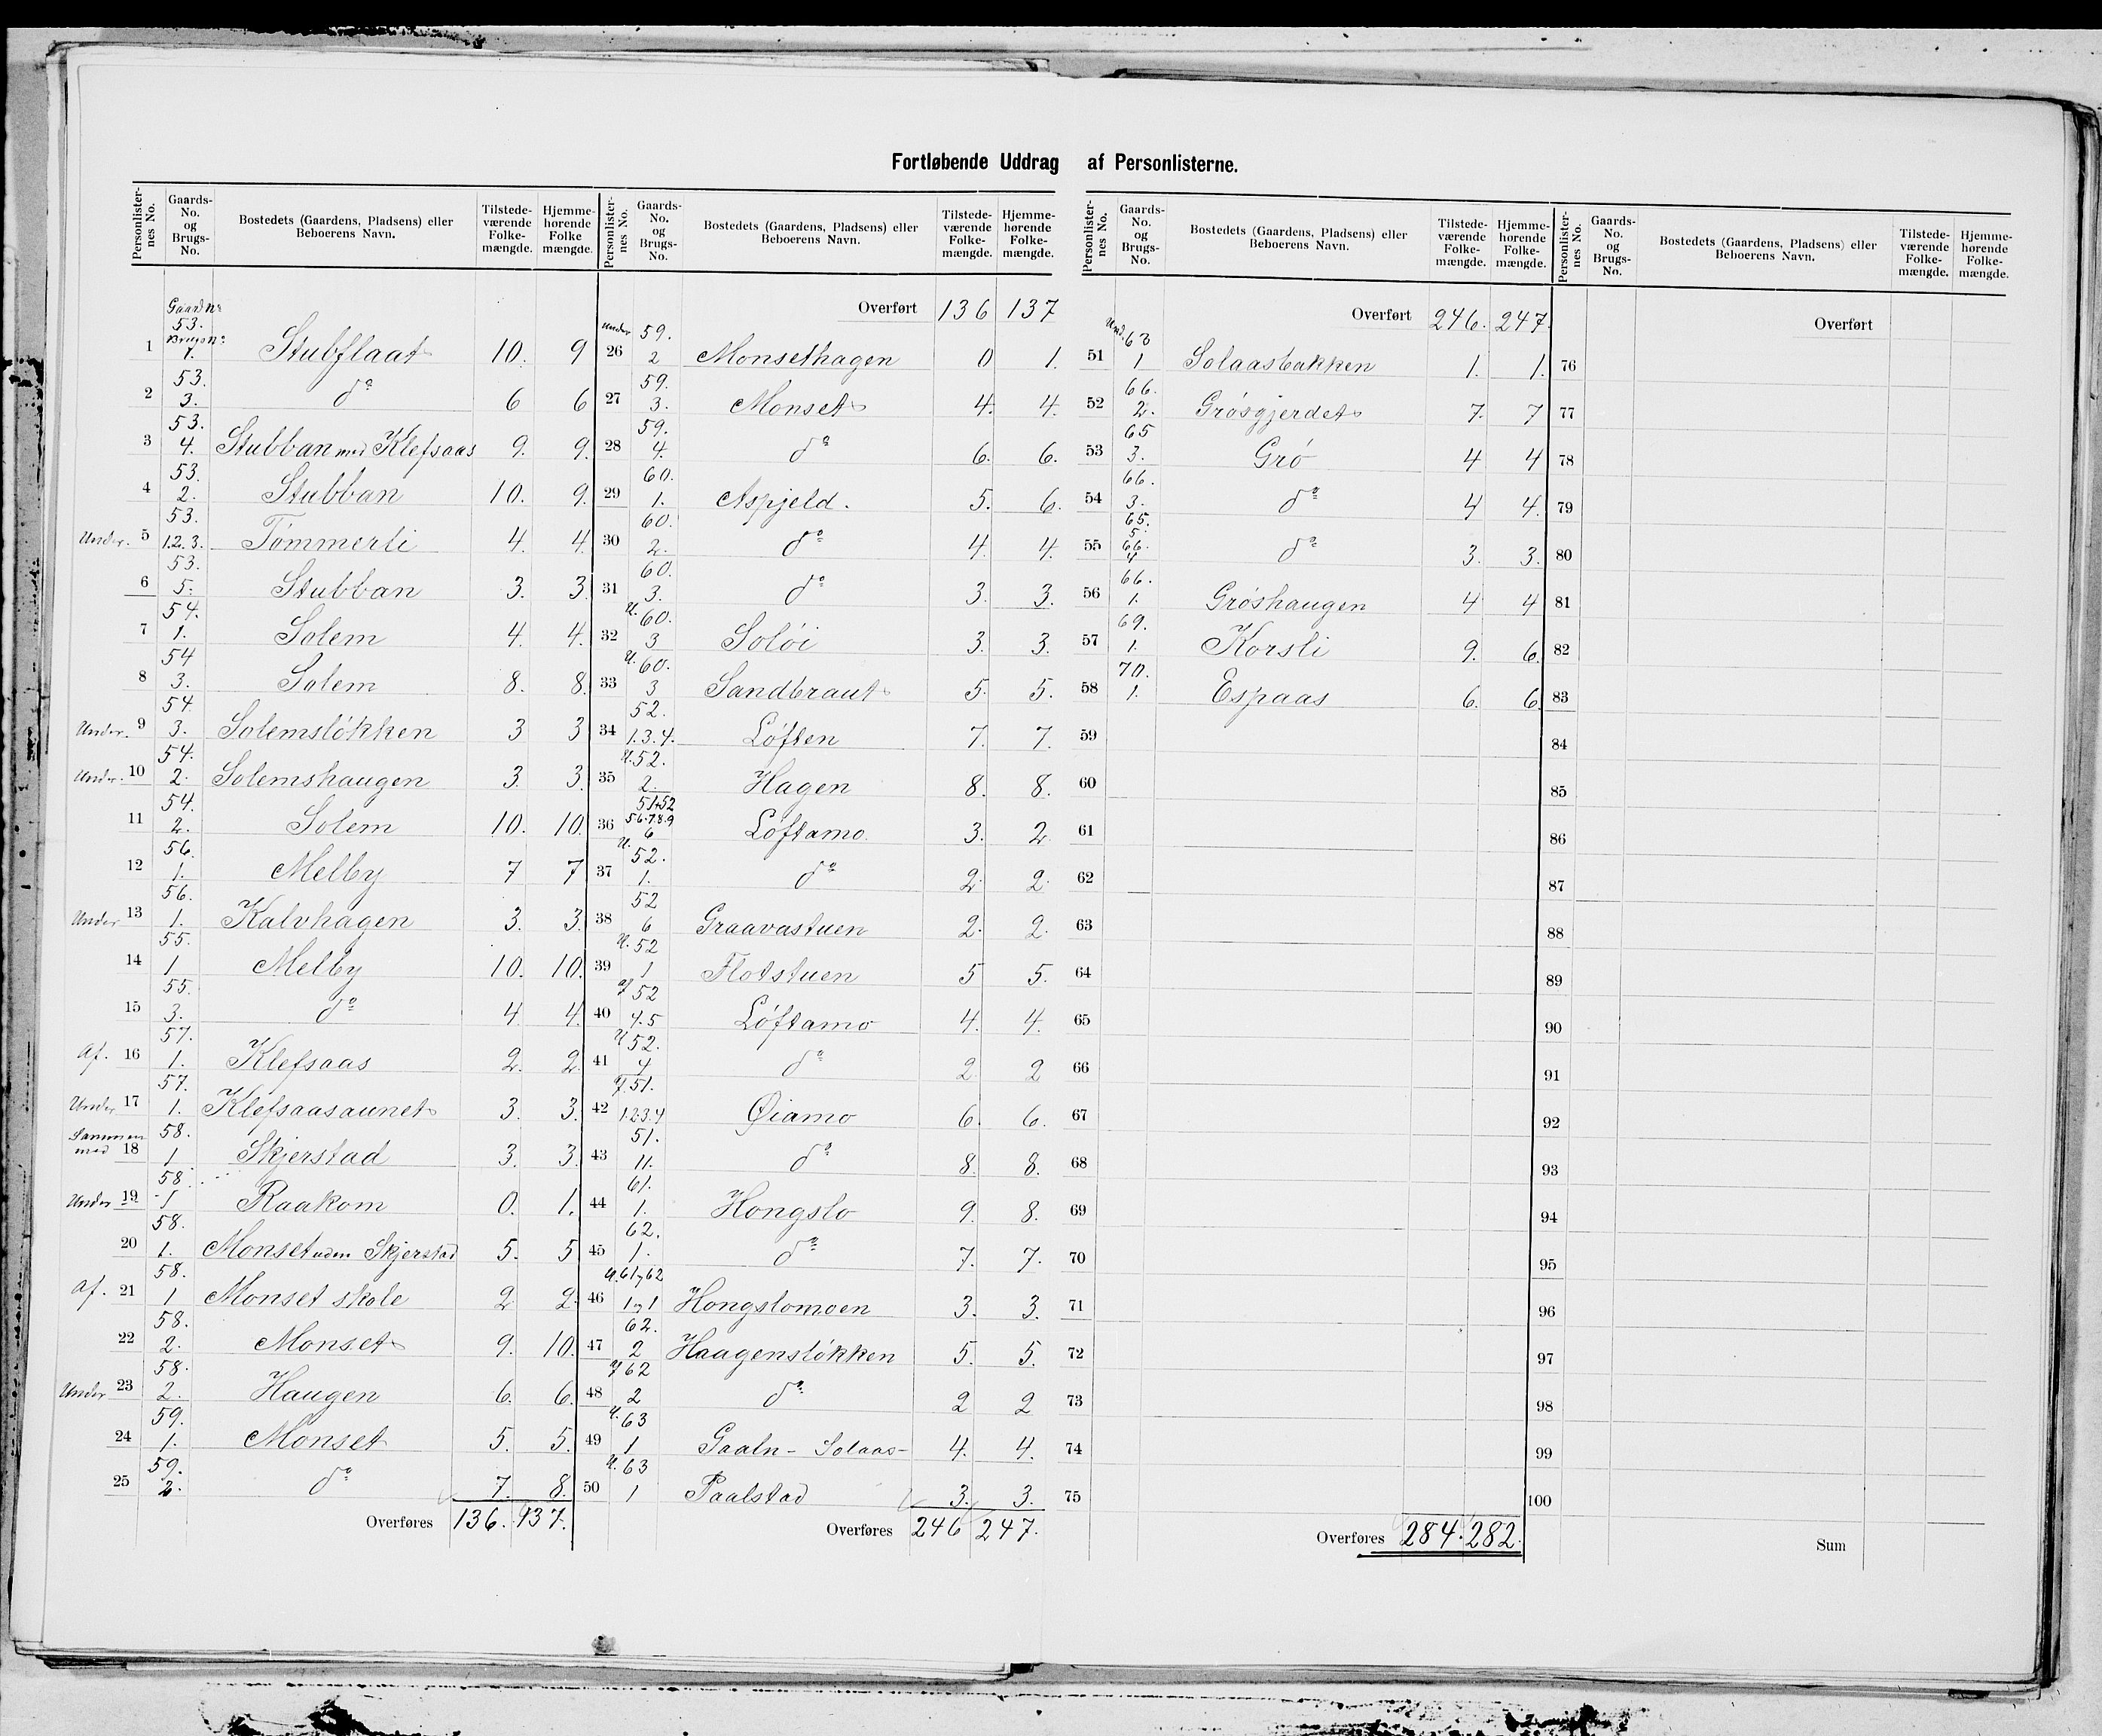 Fortløbende Uddrag af Personlisterne.
Personlister-nes No. Gaards-No. og Brugs-No. Bostedets (Gaardens, Pladsens) eller Beboerens Navn. Tilstede-værende Folke-mængde. Hjemme-hørende Folke mængde.
Gaard No 53. Brugs No
1 1. Stubflaat 10. 9
2 53. 3. do 6 6
3 53. 4. Stubban med Klefsaas 9. 9.
4 53. 2. Stubban 10. 9.
Under. 5 53. 1.2.3. Tømmerli 4. 4.
6 53. 5. Stubban 3. 3.
7 54. 1. Solem 4. 4.
8 54 3. Solem 8. 8.
Under. 9 54. 3. Solemsløkken 3 3
Under. 10 54. 2. Solemshaugen 3. 3.
11 54. 2. Solem 10. 10.
12 56. 1. Melby 7 7
Under 13 56. 1. Kalvhagen 3. 3.
14 55. 1 Melby 10. 10.
15 55. 3. do 4 4.
Af. 16 57. 1. Klefsaas 2. 2.
Under 17 57. 1. Klefsaasaunet 3. 3.
Sammen med 18 58. 1 Skjerstad 3. 3.
Under 19 58. 1 Raakom 0. 1.
20 58. 1. Monset uden Skjerstad 5. 5
Af. 21 58. 1 Monset skole 2 2.
22 58. 2. Monset 9. 10.
Under 23 58. 2. Haugen 6. 6.
24 59. 1. Monset 5. 5.
25 59. 2. do 7. 8.
Overføres 136. 137.
Personlister-nes No. Gaards-No. og Brugs-No. Bostedets (Gaardens, Pladsens) eller Beboerens Navn. Tilstede-værende Folke-mængde. Hjemme-hørende Folke-mængde.
Overført 136 137
Under 26 59. 2 Monsethagen 0 1.
27 59. 3. Monset 4. 4.
28 59. 4. do 6. 6.
29 60. 1. Aspjeld. 5. 6.
30 60. 2. do 4. 4.
31 60. 3. do 3. 3.
32 U. 60. 3 Soløi 3. 3.
33 U. 60. 3 Sandbraut 5. 5.
34 52. 1.3.4. Løften 7. 7.
35 U. 52. 2. Hagen 8. 8.
36 51+52 5 6.7.8.9 6 Løftamo 3. 2
37 U. 52. 1. do 2 2.
38 52 6 Graavastuen 2. 2.
39 U. 52 1 Flotstuen 5 5.
40 af 52 4.5 Løftamo 4. 4.
41 52. 4 do 2 2
42 af 51. 1.2.3.4 Øiamo 6 6.
43 51. 11. do 8. 8.
44 61. 1. Hongslo 9. 8.
45 62. 1. do 7. 7.
46 U. 61 & 62 1 & 1 Hongslomoen 3. 3.
47 62. 2 Haagensløkken 5. 5.
48 af 62 2 do 2 2
49 U. 63 1 Gaaln - Solaas - 4. 4.
50 U. 63 1 Paalstad 3. 3.
Overføres 246 247.
Personlister-nes No. Gaards-No. og Brugs-No. Bostedets (Gaardens, Pladsens) eller Beboerens Navn. Tilstede-værende Folke-mængde. Hjemme-hørende Folke-mængde.
Overført 246. 247.
Und. 51 63 1 Solaasbakken 1. 1.
52 66. 2. Grøsgjerdet 7. 7
53 65 3. Grø 4 4
54 66. 3. do 4 4.
55 65. 5. 66. 4 do 3. 3.
56 66. 1. Grøshaugen 4 4
57 69. 1. Korsli 9. 6.
58 70. 1. Espaas 6. 6.
59
60
61
62
63
64
65
66
67
68
69
70
71
72
73
74
75
Overføres 284. 282.
Personlister-nes No. Gaards-No. og Brugs-No. Bostedets (Gaardens, Pladsens) eller Beboerens Navn. Tilstede-værende Folke-mængde. Hjemme-hørende Folke-mængde.
Overført
76
77
78
79
80
81
82
83
84
85
86
87
88
89
90
91
92
93
94
95
96
97
98
99
100
Sum